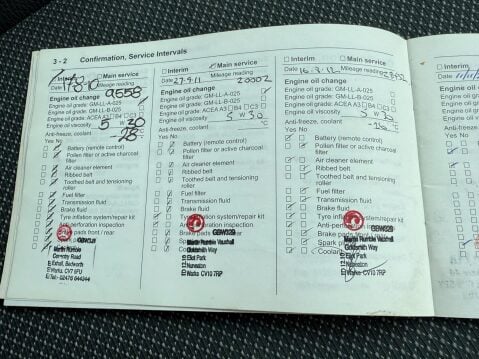 3 - 2 Confirmation, Service Intervals
Interim Main service
Date Mileage reading
9558
Engine oil change
Engine oil grade: GM-LL-A-025
Engine oil grade: GM-LL-B-025
Engine oil grade: ACEA A3 B4 C3
Engine oil viscosity 5 W 30
Anti-freeze, coolant -28 °C
Yes No
Battery (remote control)
Pollen filter or active charcoal filter
Air cleaner element
Ribbed belt
Toothed belt and tensioning roller
Fuel filter
Transmission fluid
Brake fluid
Tyre inflation system/repair kit
Anti-perforation inspection
Brake pads front / rear
Martin Rumble
Coventry Road
Exhall, Bedworth
Warks. CV7 9FU
Tel: 02476
Interim Main service
Date 27-9-11 Mileage reading
20002
Engine oil change
Engine oil grade: GM-LL-A-025
Engine oil grade: GM-LL-B-025
Engine oil grade: ACEA A3 B4 C3
Engine oil viscosity 5 W 30
Anti-freeze, coolant °C
Yes No
Battery (remote control)
Pollen filter or active charcoal filter
Air cleaner element
Ribbed belt
Toothed belt and tensioning roller
Fuel filter
Transmission fluid
Brake fluid
Tyre inflation system/repair kit
Anti-perforation inspection
Brake pads
Martin Rumble Vauxhall
Goldsmith Way
Eliot Park
Nuneaton
Warks CV10 7RP
Interim Main service
Date 16-3-12 Mileage reading
Engine oil change
Engine oil grade: GM-LL-A-025
Engine oil grade: GM-LL-B-025
Engine oil grade: ACEA A3 B4 C3
Engine oil viscosity 5 W 30
Anti-freeze, coolant °C
Yes No
Battery (remote control)
Pollen filter or active charcoal filter
Air cleaner element
Ribbed belt
Toothed belt and tensioning roller
Fuel filter
Transmission fluid
Brake fluid
Tyre inflation system/repair kit
Anti-perforation inspection
Brake pads
Spark
Coolant
Martin Rumble Vauxhall
Goldsmith Way
Eliot Park
Nuneaton
Warks CV10 7RP
Interim
Date
Engine oil
Engine oil
Engine oil
Engine oil
Engine oil
Anti-freeze
Yes No